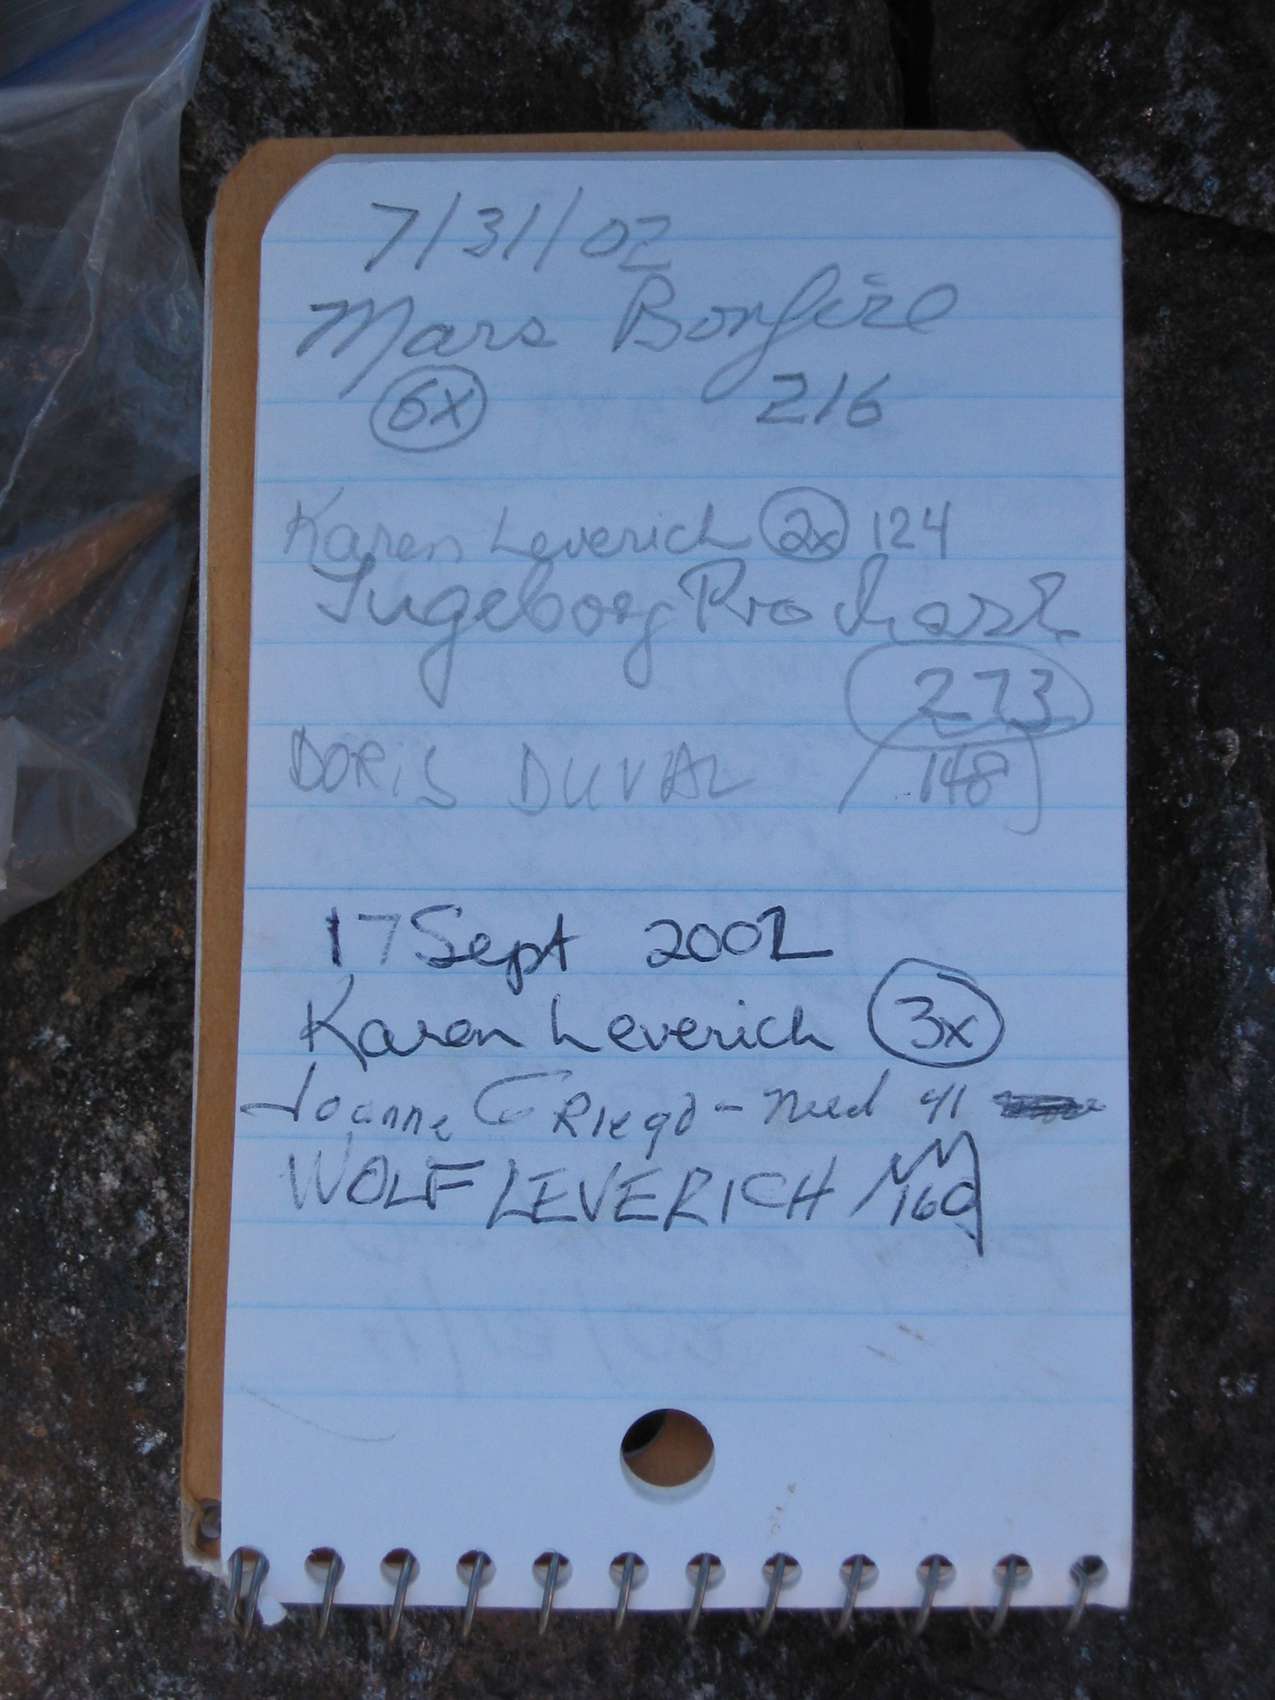 7/31/02
Mars Bonfire
6x 216
Karen Leverich 2x 124
Ingeborg Prochazka
273
DORIS DUVAL 148
17 Sept 2002
Karen Leverich 3x
Joanne C Griego - need 41
WOLF LEVERICH 160